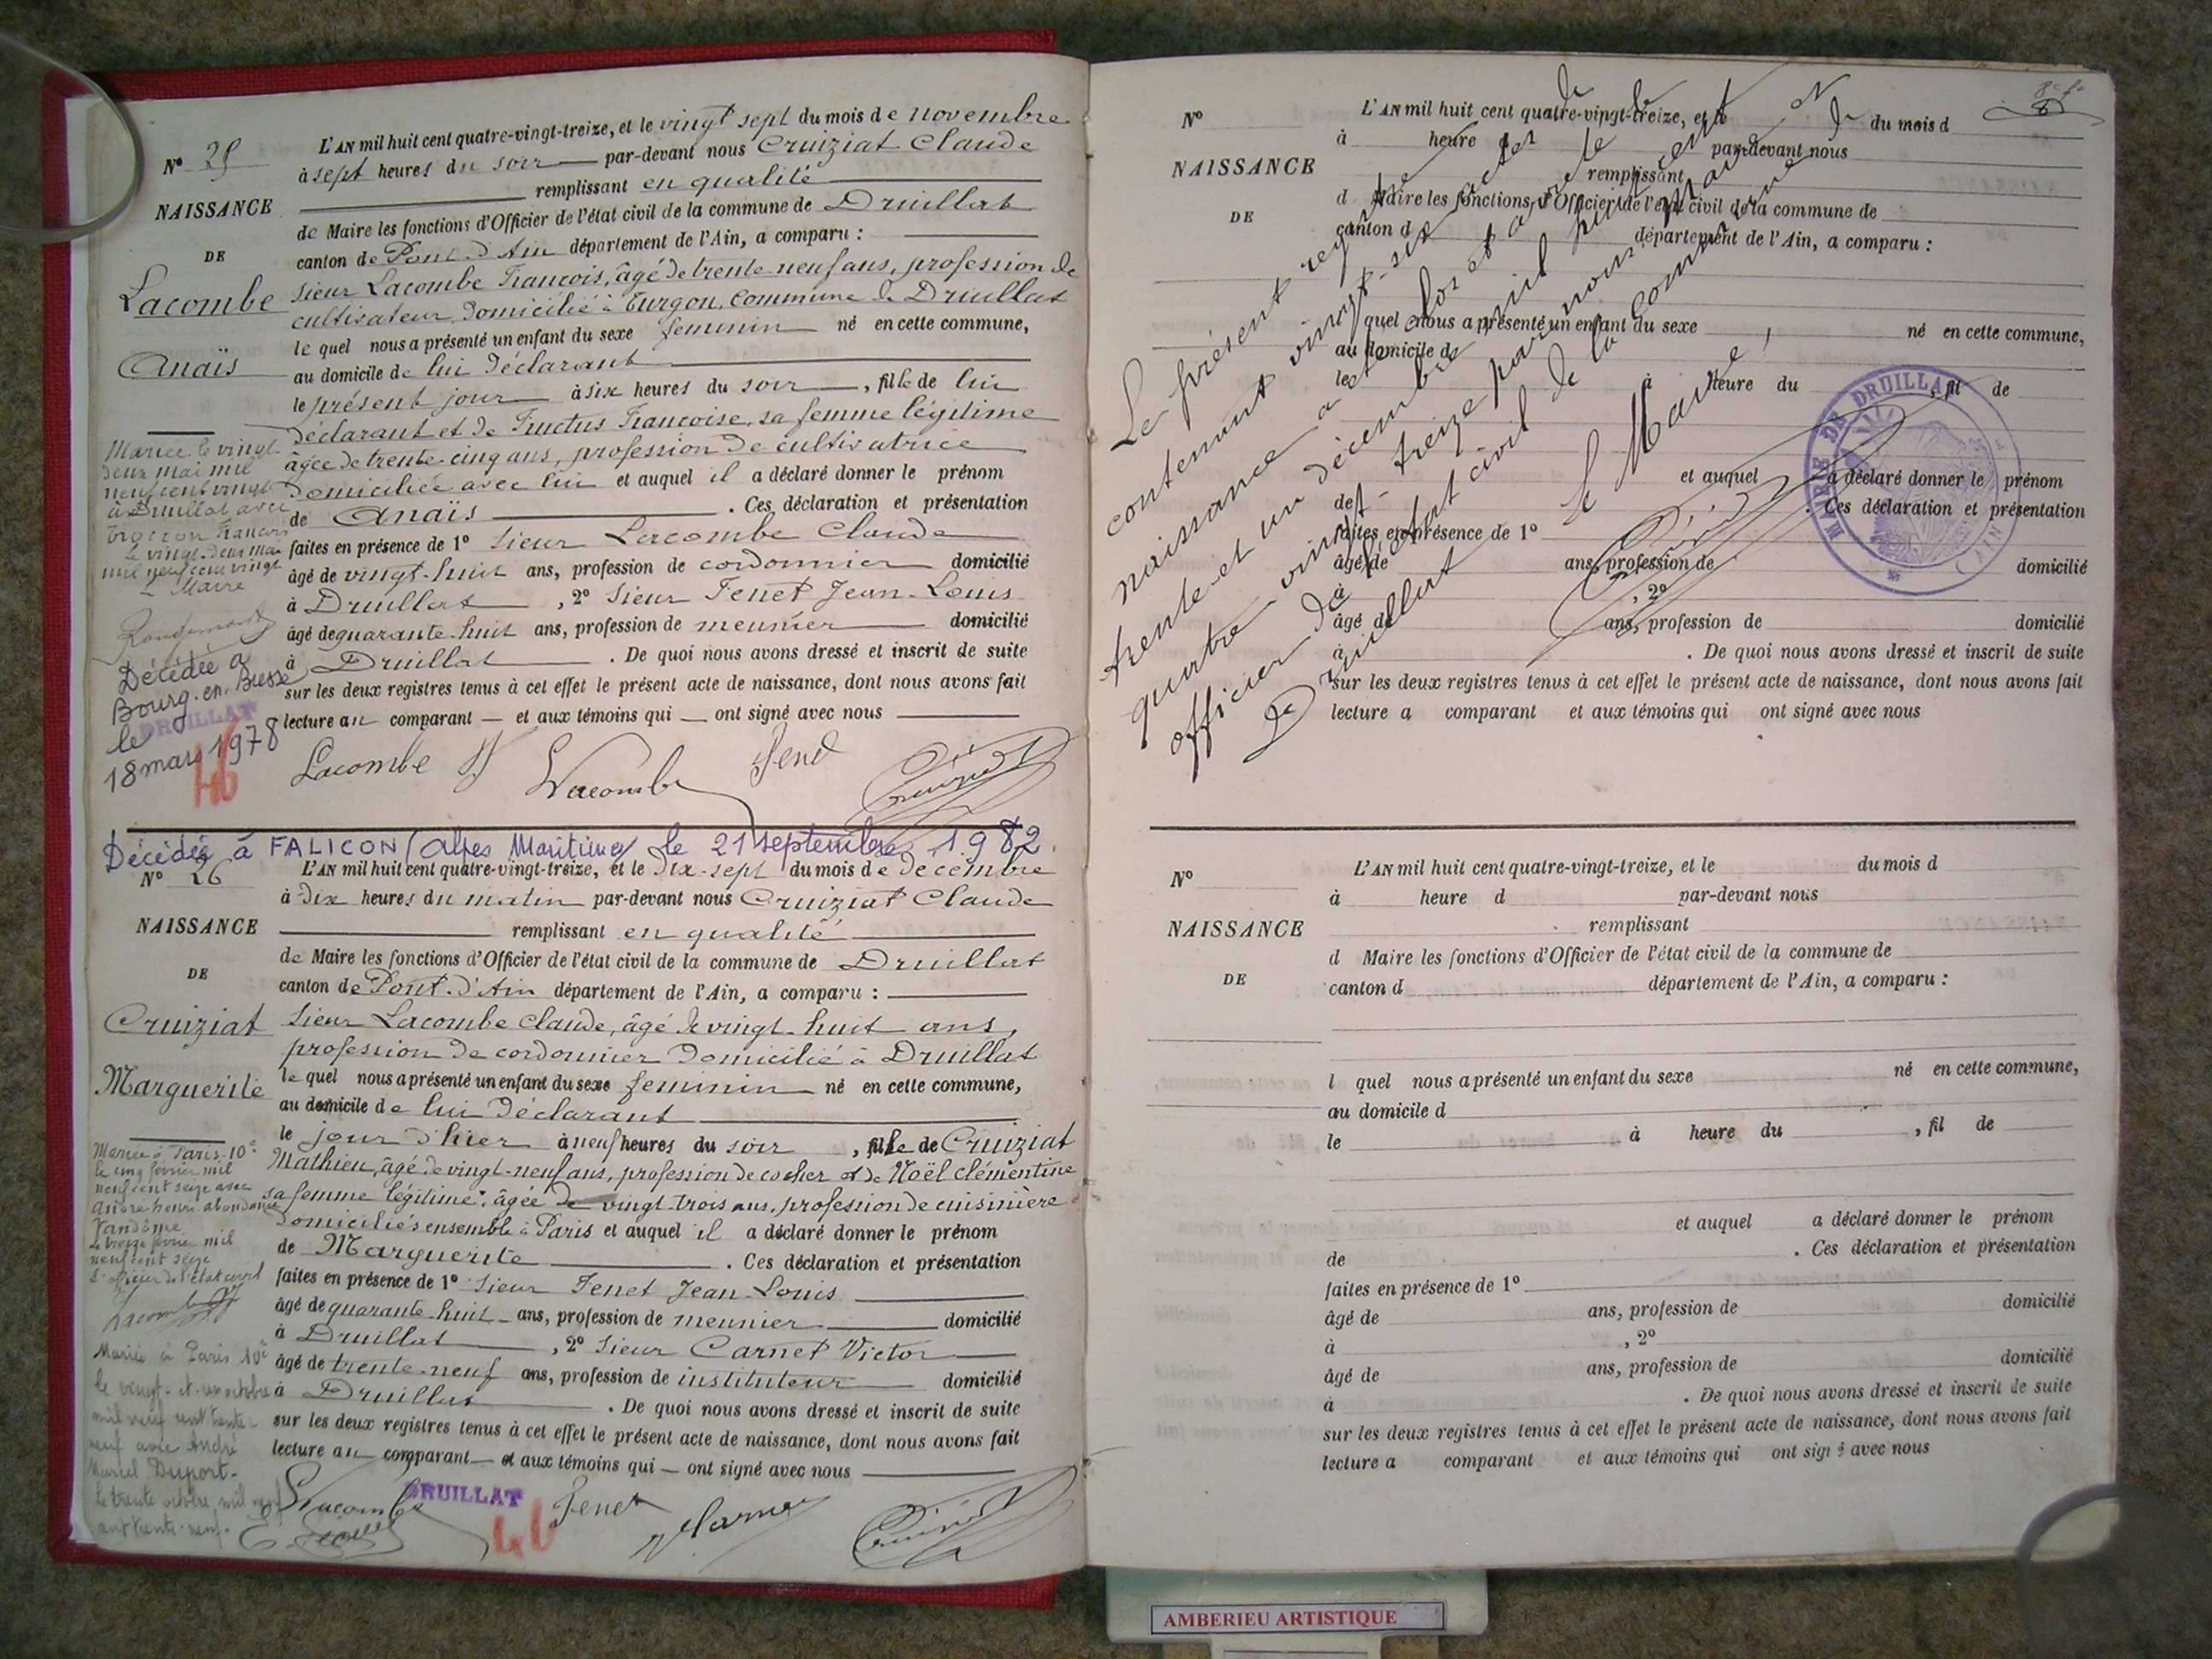 N° 25
NAISSANCE
DE
Lacombe
Anaïs
Mariée le vingt
deux mai mil
neuf cent vingt
à Druillat avec
François
le vingt-deux mai
mil neuf cent vingt
Le Maire
Décédée à
Bourg-en-Bresse
le
18 mars 1978
DRUILLAT
46
L'AN mil huit cent quatre-vingt-treize, et le vingt sept du mois de novembre
à sept heures du soir par-devant nous Cruiziat Claude
remplissant en qualité
de Maire les fonctions d'Officier de l'état civil de la commune de Druillat
canton de Pont-d'Ain département de l'Ain, a comparu :
sieur Lacombe François, âgé de trente-neuf ans, profession de
cultivateur, domicilié à Turgon, commune de Druillat
le quel nous a présenté un enfant du sexe féminin né en cette commune,
au domicile de lui déclarant
le présent jour à six heures du soir, fille de lui
déclarant et de Fructus Françoise, sa femme légitime
âgée de trente-cinq ans, profession de cultivatrice
domiciliée avec lui et auquel il a déclaré donner le prénom
de Anaïs . Ces déclaration et présentation
faites en présence de 1° sieur Lacombe Claude
âgé de vingt-huit ans, profession de cordonnier domicilié
à Druillat , 2° sieur Fenet Jean-Louis
âgé de quarante-huit ans, profession de meunier domicilié
à Druillat . De quoi nous avons dressé et inscrit de suite
sur les deux registres tenus à cet effet le présent acte de naissance, dont nous avons fait
lecture au comparant — et aux témoins qui — ont signé avec nous
Lacombe Lacombe Fenet Cruiziat
Décédée à FALICON (Alpes Maritimes) le 21 septembre 1982.
N° 26
NAISSANCE
DE
Cruiziat
Marguerite
Mariée à Paris 10e
le cinq février mil
neuf cent seize avec
André henri abondance
Vandôme
Le treize février mil
neuf cent seize
L'officier de l'état civil
Lacombe
Mariée à Paris 10e
le vingt-et-un octobre
mil neuf cent trente-
neuf avec André
Marcel Duport.
Le trente octobre mil neuf
cent trente-neuf.
L'AN mil huit cent quatre-vingt-treize, et le dix-sept du mois de décembre
à dix heures du matin par-devant nous Cruiziat Claude
remplissant en qualité
de Maire les fonctions d'Officier de l'état civil de la commune de Druillat
canton de Pont-d'Ain département de l'Ain, a comparu :
sieur Lacombe Claude, âgé de vingt-huit ans,
profession de cordonnier domicilié à Druillat
le quel nous a présenté un enfant du sexe féminin né en cette commune,
au domicile de lui déclarant
le jour d'hier à neuf heures du soir , fille de Cruiziat
Mathieu, âgé de vingt-neuf ans, profession de cocher et de Noël Clémentine
sa femme légitime, âgée de vingt-trois ans, profession de cuisinière
domiciliés ensemble à Paris et auquel il a déclaré donner le prénom
de Marguerite . Ces déclaration et présentation
faites en présence de 1° sieur Fenet Jean-Louis
âgé de quarante-huit ans, profession de meunier domicilié
à Druillat , 2° sieur Carnet Victor
âgé de trente-neuf ans, profession de instituteur domicilié
à Druillat . De quoi nous avons dressé et inscrit de suite
sur les deux registres tenus à cet effet le présent acte de naissance, dont nous avons fait
lecture au comparant — et aux témoins qui — ont signé avec nous
Lacombe DRUILLAT Fenet V Carnet Cruiziat
46
8
N°
NAISSANCE
DE
L'AN mil huit cent quatre-vingt-treize, et le du mois d
à heure d par-devant nous
remplissant
d Maire les fonctions d'Officier de l'état civil de la commune de
canton d département de l'Ain, a comparu :
l quel nous a présenté un enfant du sexe né en cette commune,
au domicile d
le à heure du , fil de
et auquel a déclaré donner le prénom
de . Ces déclaration et présentation
faites en présence de 1°
âgé de ans, profession de domicilié
à , 2°
âgé de ans, profession de domicilié
à . De quoi nous avons dressé et inscrit de suite
sur les deux registres tenus à cet effet le présent acte de naissance, dont nous avons fait
lecture a comparant et aux témoins qui ont signé avec nous
Le présent registre
contenant vingt-six actes de
naissance a été clos et arrêté le
trente-et-un décembre mil huit cent
quatre-vingt-treize par nous Maire et
officier de l'état civil de la commune
de Druillat
Le Maire,
MAIRIE DE DRUILLAT
(AIN)
N°
NAISSANCE
DE
L'AN mil huit cent quatre-vingt-treize, et le du mois d
à heure d par-devant nous
remplissant
d Maire les fonctions d'Officier de l'état civil de la commune de
canton d département de l'Ain, a comparu :
l quel nous a présenté un enfant du sexe né en cette commune,
au domicile d
le à heure du , fil de
et auquel a déclaré donner le prénom
de . Ces déclaration et présentation
faites en présence de 1°
âgé de ans, profession de domicilié
à , 2°
âgé de ans, profession de domicilié
à . De quoi nous avons dressé et inscrit de suite
sur les deux registres tenus à cet effet le présent acte de naissance, dont nous avons fait
lecture a comparant et aux témoins qui ont signé avec nous
AMBERIEU ARTISTIQUE